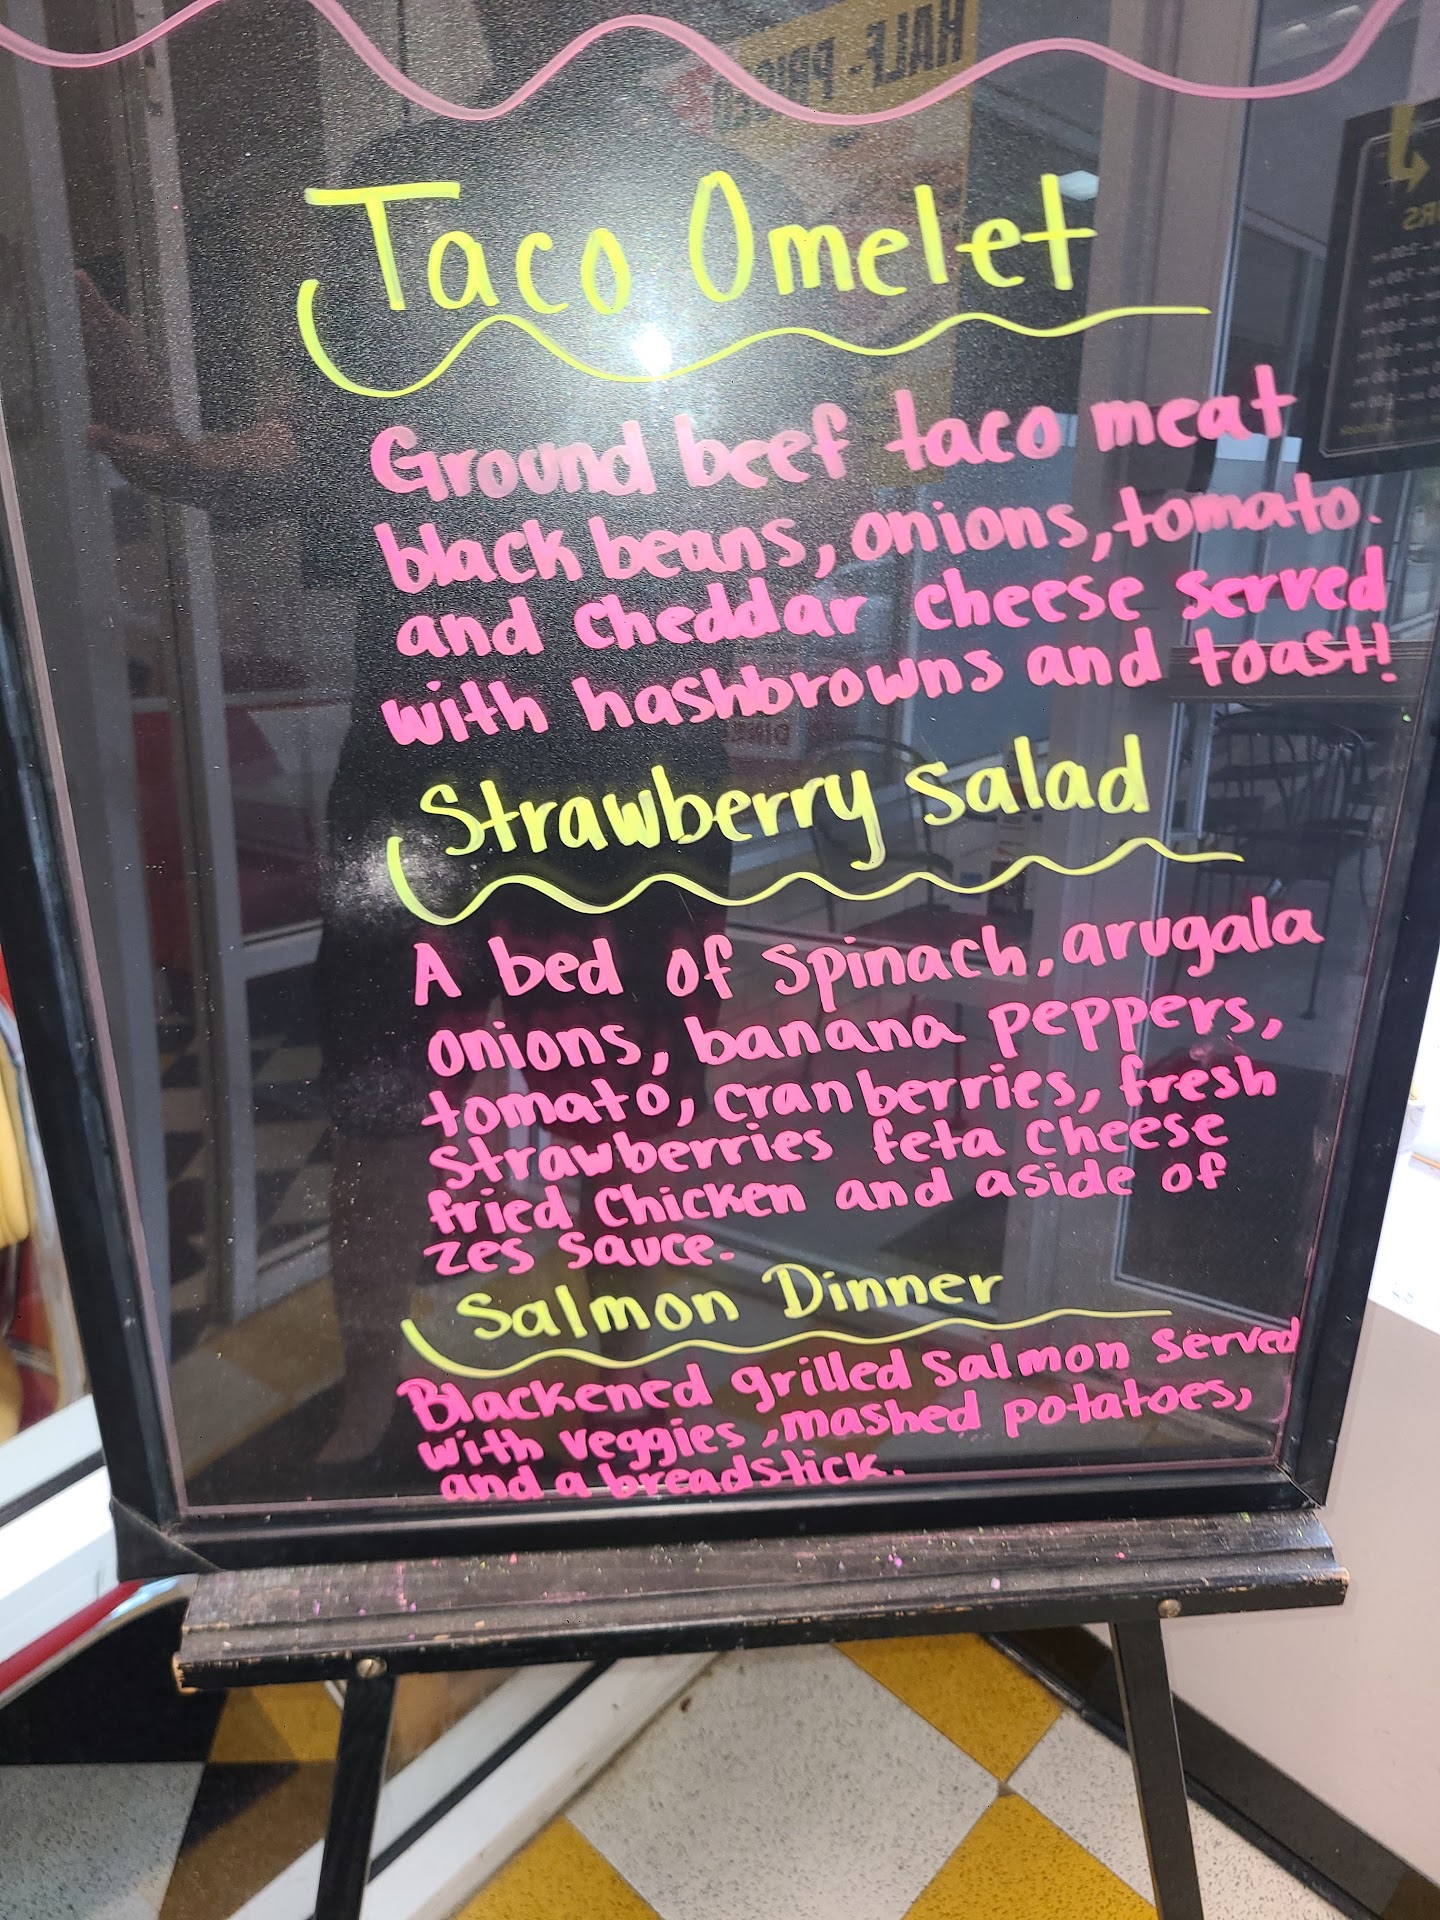 HALF-PRICE
Taco Omelet
Ground beef taco meat
black beans, onions, tomato.
and cheddar cheese served
with hashbrowns and toast!
Strawberry salad
A bed of spinach, arugala
onions, banana peppers,
tomato, cranberries, fresh
strawberries feta cheese
fried chicken and aside of
zes sauce.
Salmon Dinner
Blackened grilled salmon served
with veggies, mashed potatoes,
and a breadstick.